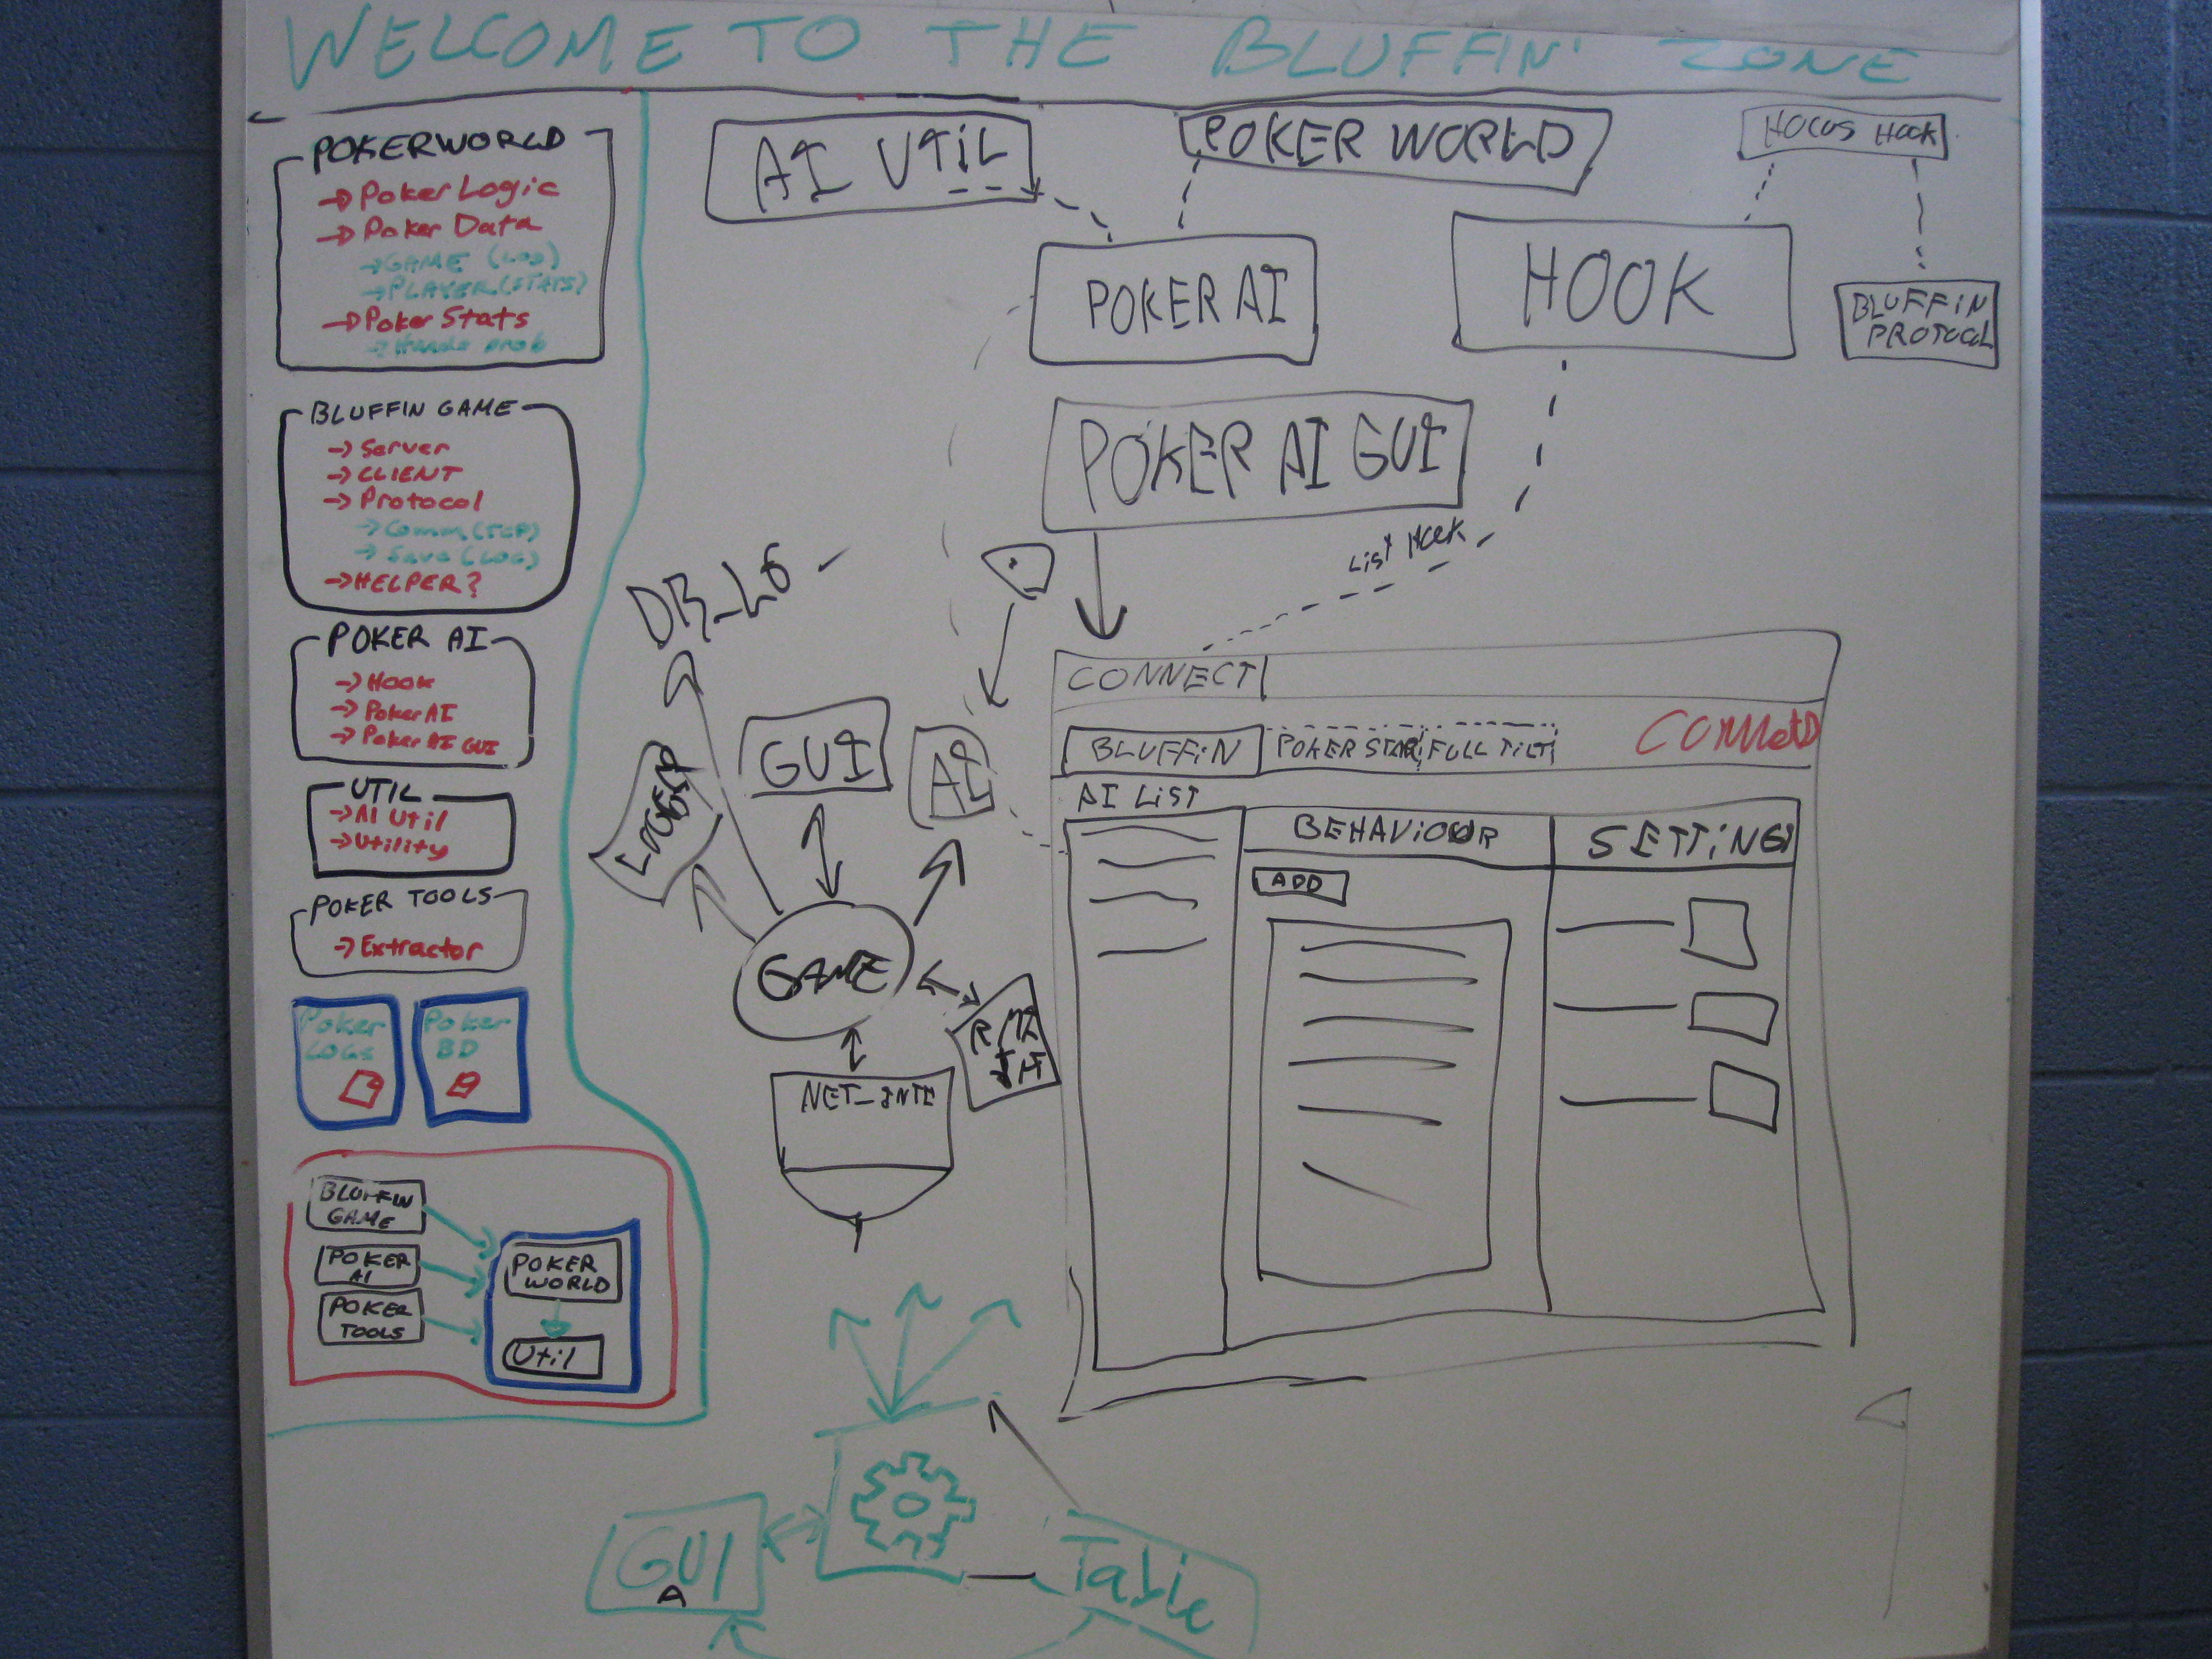 WELCOME TO THE BLUFFIN' ZONE
POKERWORLD
→ Poker Logic
→ Poker Data
→ GAME (LOG)
→ PLAYER (STATS)
→ Poker Stats
→ Hands prob
BLUFFIN GAME
→ Server
→ CLIENT
→ Protocol
→ Comm (TCP)
→ Save (LOG)
→ HELPER?
POKER AI
→ Hook
→ Poker AI
→ Poker AI GUI
UTIL
→ AI Util
→ Utility
POKER TOOLS
→ Extractor
Poker
LOGS
Poker
BD
BLUFFIN
GAME
POKER
AI
POKER
TOOLS
POKER
WORLD
Util
AI UTIL
POKER WORLD
HOCUS HOOK
POKER AI
HOOK
BLUFFIN
PROTOCOL
POKER AI GUI
List HOOK
LOGGER
GUI
AI
GAME
CONNECT
BLUFFIN
POKER STAR
FULL TILT
AI LIST
BEHAVIOUR
SETTING
ADD
GUI
A
Table